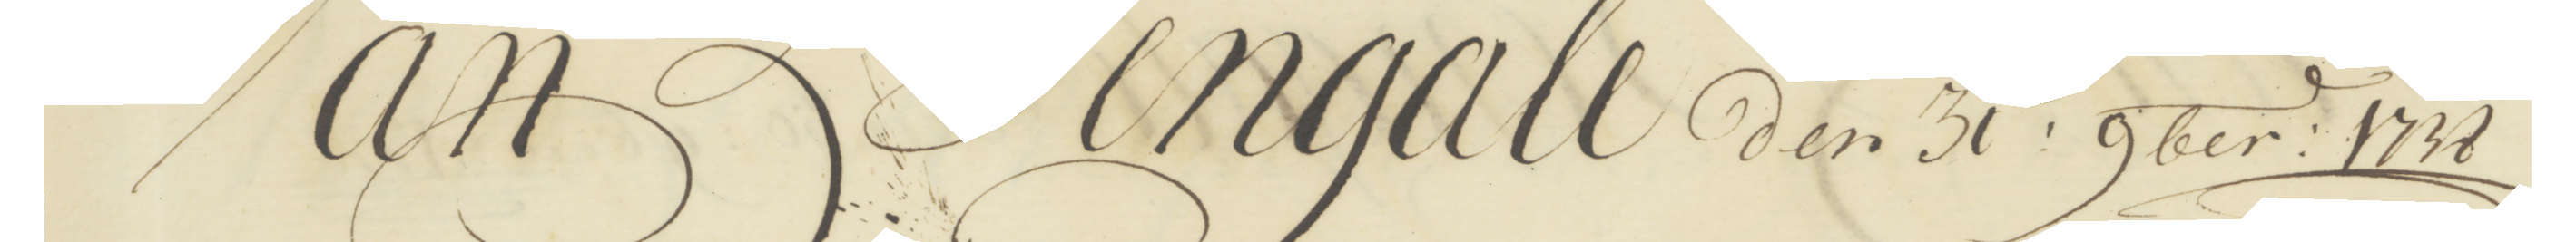 Van Bengale den 31: 9ber: 1738